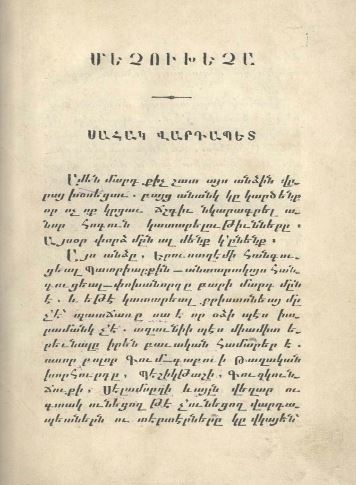 ՄԵՉՈՒԽԵՉԱ
ՍԱՀԱԿ ՎԱՐԴԱՊԵՏ
Ամեն մարդ քիչ շատ այս անձին վը-
րայ խօսեցաւ. բայց անանկ կը կարծենք
որ ոչ ոք կրցաւ ճշդիւ նկարագրել ա-
նոր հոգւոն կատարելութիւնները։
Այսօր փորձ մըն ալ մենք կ՚ընենք։
Այս անձը, Երուսաղէմի հանգու-
ցեալ Պատրիարքին—անտարակոյս հան-
գուցեալ—փոխանորդը բարի մարդ մըն
է. և եթէ կատարեալ քրիստոնեայ մը
չէ՝ պատճառը սա է որ օձի պէս խո-
րամանկ չէ. աղունիի պէս միամիտ ե-
րևնալը իրեն բաւական համարեր է.
ատոր բոլոր Գում-գաբուի Թաղական
խորհուրդը, Պէշիկթաշի, Գուզկուն-
ճուքի, Սէլամսըզի և այլն վեղար ու
գտակ ունեցող թէ չունեցող վարդա-
պետներն ու տէրտէրները կը վկայեն՝